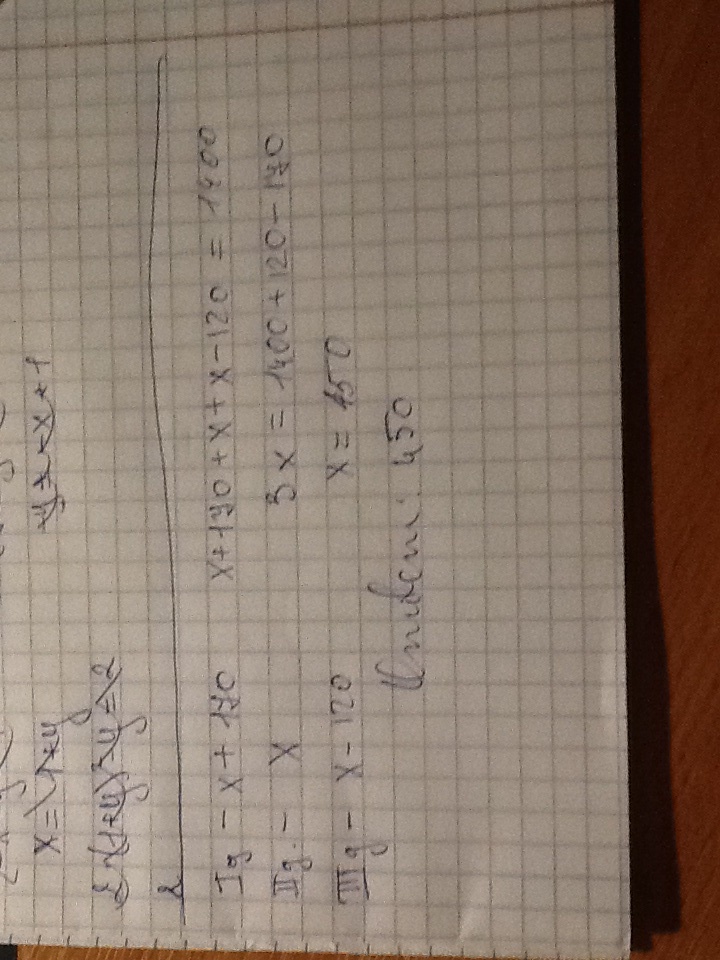 x = 1+y
y = -x+1
2(1+y)-y=2
2
I g - x + 170 x+170+x+x-120 = 1400
II g. - x 3x = 1400+120-170
III g - x - 120 x = 450
450